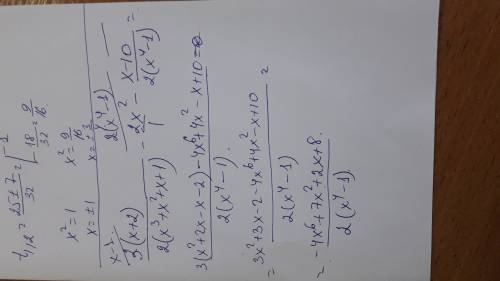 t₁,₂ = (25 ± 7)/32 = [ 1
18/32 = 9/16
x² = 1   x² = 9/16
x = ±1   x = ±3
3(x+2)/2(x³+x²+x+1) - 2x²/1 - (x-10)/2(x⁴-1) =
(3(x²+2x-x-2) - 4x⁶ + 4x² - x + 10)/2(x⁴-1) =
= (3x² + 3x - 2 - 4x⁶ + 4x² - x + 10)/2(x⁴-1) =
= (-4x⁶ + 7x² + 2x + 8)/2(x⁴-1).